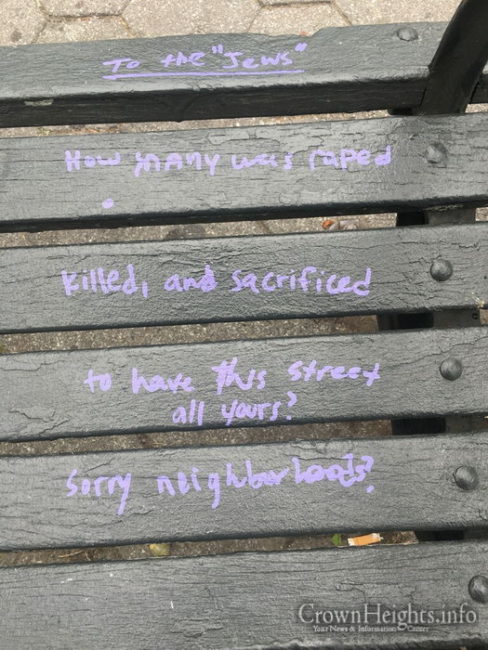 To the "Jews"
How many was raped
killed, and sacrificed
to have this street
all yours?
Sorry neighborhoods?
CrownHeights.info
Your News & Information Center